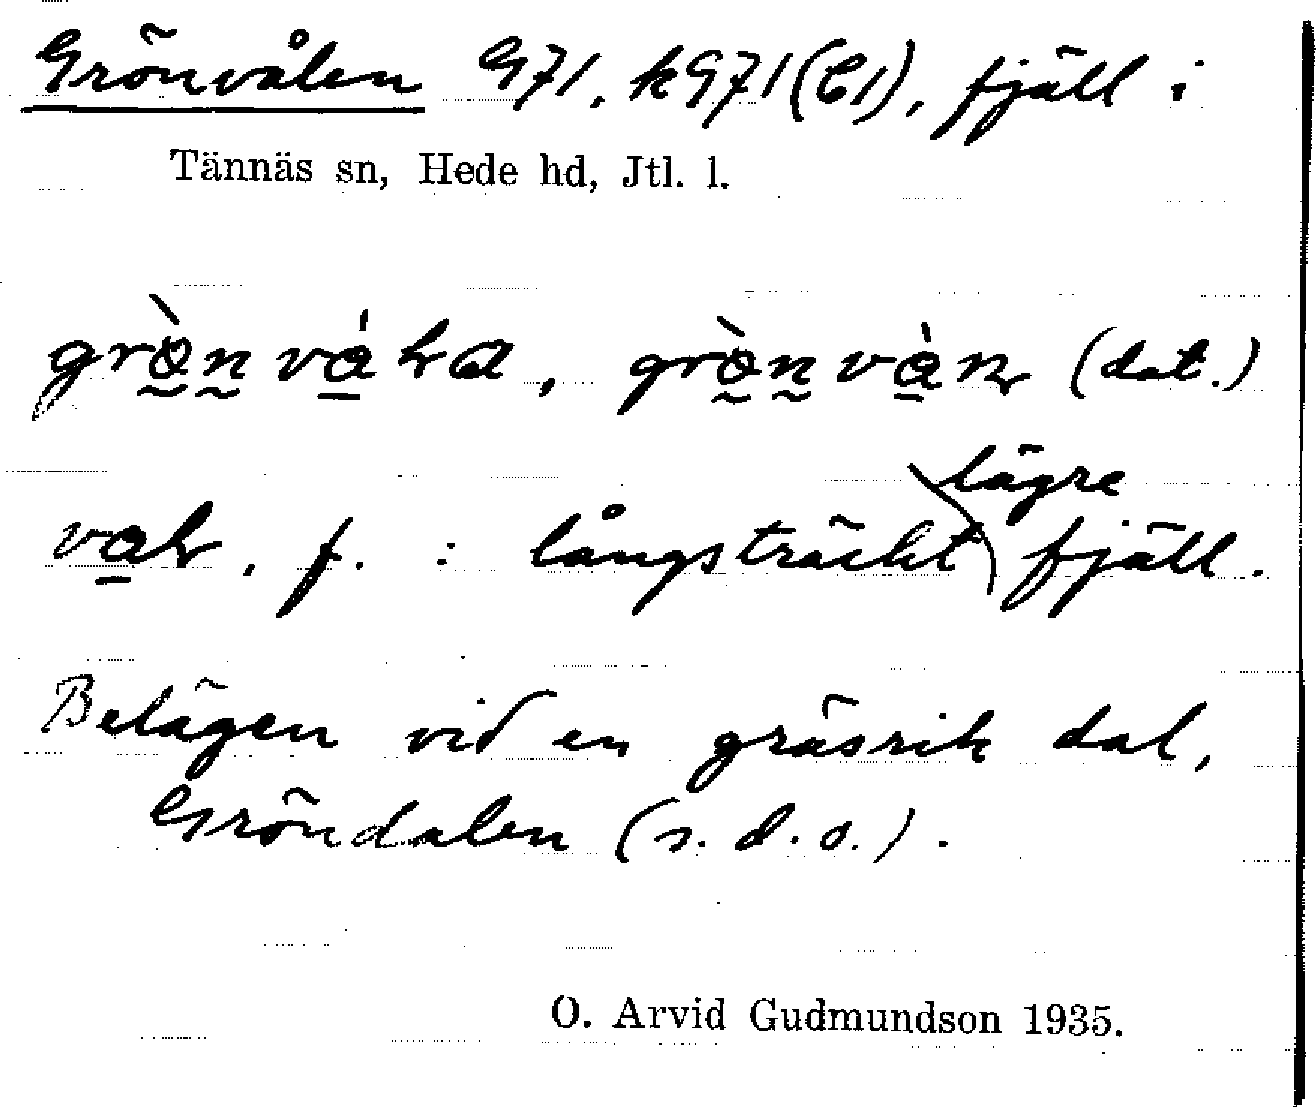 Grönvålen G71, kG71(C1), fjäll i
Tännäs sn, Hede hd, Jtl. l.
(dat.)
f. : långsträckt lägre fjäll.
Belägen vid en gräsrik dal,
Gröndalen (s. d. o.).
O. Arvid Gudmundson 1935.